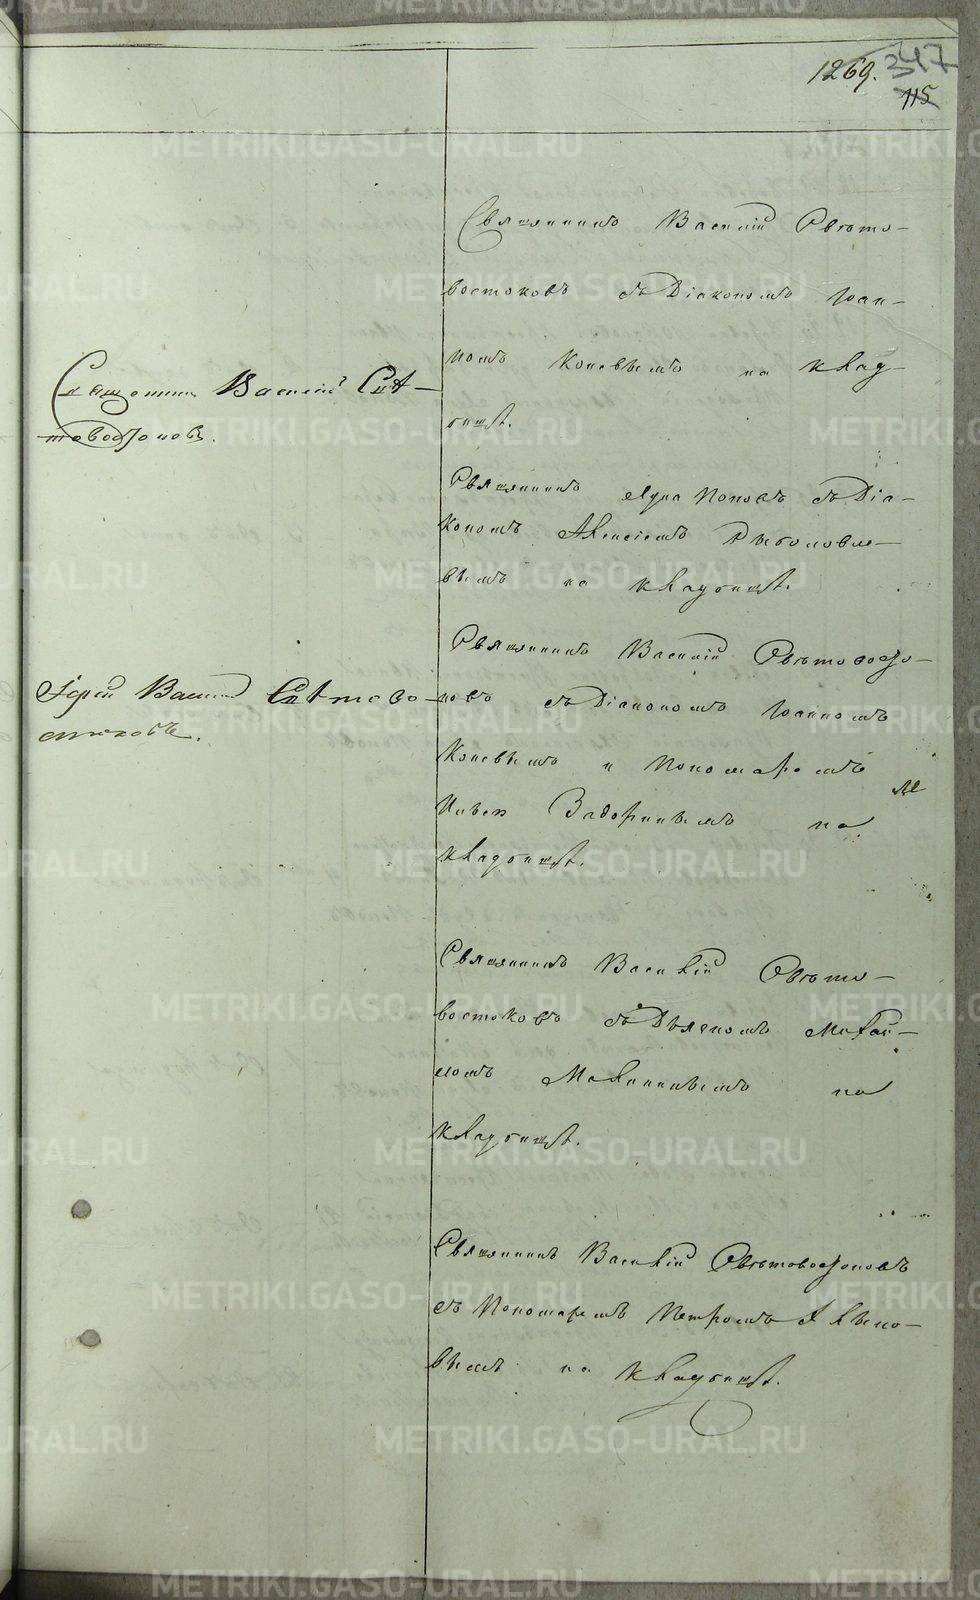 1269. 347
115
Священникъ Василій Свѣто-
востоковъ съ Діакономъ Іоан-
номъ Коневымъ на клад-
бищѣ.
Священникъ Василій Свѣ-
товостоковъ.
Священникъ Лука Поповъ съ Діа-
кономъ Алексіемъ Рыболовле-
вымъ на кладбищѣ.
Священникъ Василій Свѣтовосто-
ковъ съ Діакономъ Іоанномъ
Коневымъ и Пономаремъ
Задоринымъ на
кладбищѣ.
Іерей Василій Свѣтово-
стоковъ.
Священникъ Василій Свѣто-
востоковъ съ Дьячкомъ Михаи-
ломъ на
кладбищѣ.
Священникъ Василій Свѣтовостоковъ
съ Пономаремъ Петромъ
вымъ на кладбищѣ.
METRIKI.GASO-URAL.RU